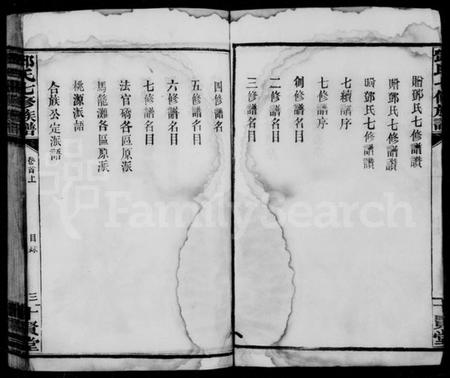 贈鄧氏七修譜讚
贈鄧氏七修譜讚
贈鄧氏七修譜讚
七續譜序
七修譜序
創修譜名目
二修譜名目
三修譜名目
四修譜名
五修譜名目
六修譜名目
七修譜名目
法官磡各區原派
馬龍灘各區原派
桃源派語
合族公定派語
鄧氏七修族譜
卷首上
目錄
三
十賢堂
FamilySearch